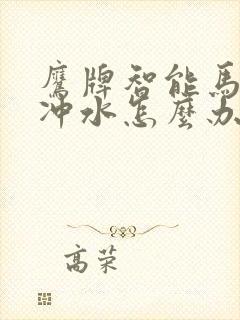 鷹牌智能馬
沖水怎麼办
高荣